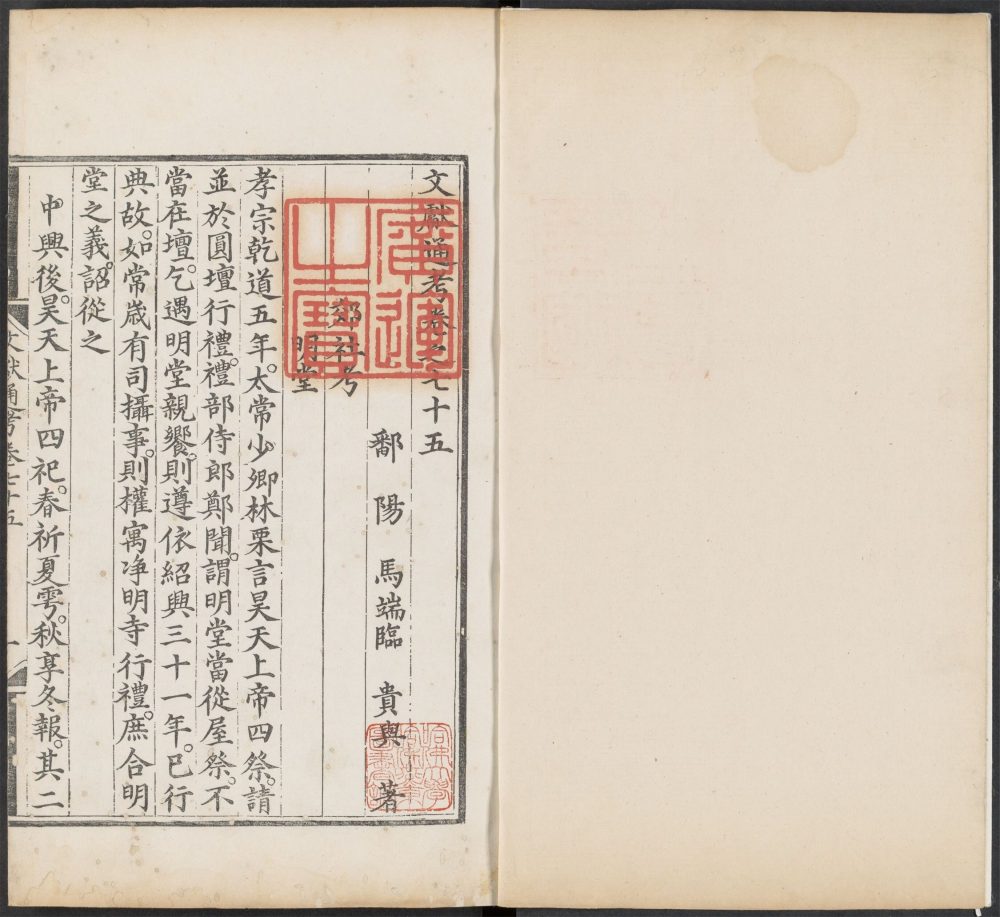 文獻通考卷之七十五
鄱陽馬端臨貴與著
郊社考
明堂
孝宗乾道五年。太常少卿林栗言昊天上帝四祭。請
並於圓壇行禮。禮部侍郎鄭聞。謂明堂當從屋祭。不
當在壇。乞遇明堂親饗。則遵依紹興三十一年。已行
典故。如常歲有司攝事。則權寓净明寺行禮。庶合明
堂之義。詔從之
中興後。昊天上帝四祀。春祈夏雩。秋享冬報。其二
文獻通考卷七十五
廣運之寶